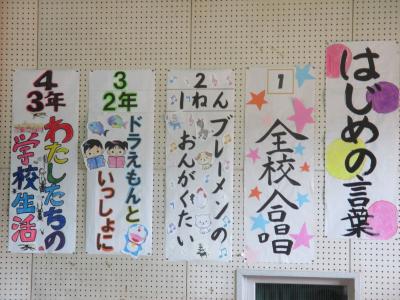 はじめの言葉
1
全校合唱
2
1ねん
ブレーメンの
おんがくたい
3
2年
ドラえもんと
いっしょに
4
3年
わたしたちの
学校生活